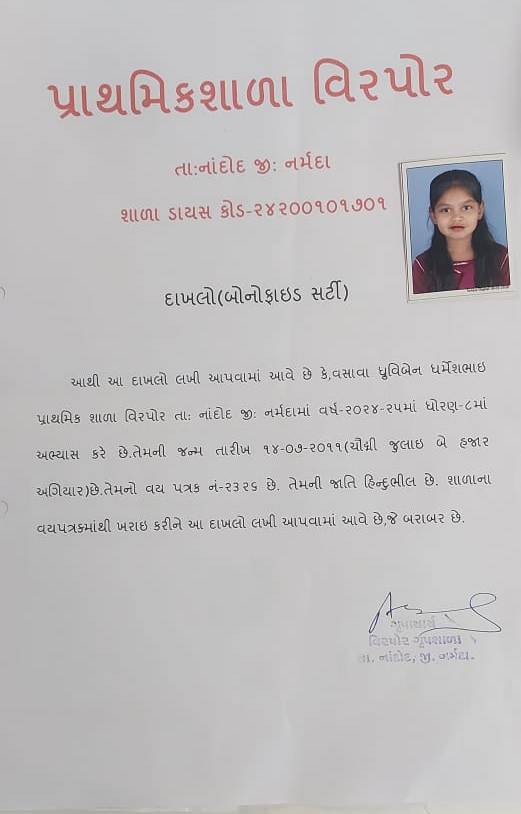 પ્રાથમિકશાળા વિરપોર
તા:નાંદોદ જી: નર્મદા
શાળા ડાયસ કોડ-૨૪૨૦૦૧૦૧૭૦૧
દાખલો(બોનોફાઇડ સર્ટી)
આથી આ દાખલો લખી આપવામાં આવે છે કે,વસાવા ધ્રુવિબેન ધર્મેશભાઇ
પ્રાથમિક શાળા વિરપોર તા: નાંદોદ જી: નર્મદામાં વર્ષ-૨૦૨૪-૨૫માં ધોરણ-૮માં
અભ્યાસ કરે છે.તેમની જન્મ તારીખ ૧૪-૦૭-૨૦૧૧(ચૌદ્મી જુલાઇ બે હજાર
અગિયાર)છે.તેમનો વય પત્રક નં-૨૩૨૬ છે. તેમની જાતિ હિન્દુભીલ છે. શાળાના
વયપત્રકમાંથી ખરાઇ કરીને આ દાખલો લખી આપવામાં આવે છે,જે બરાબર છે.
વિરપોર ગૃપશાળા
તા. નાંદોદ, જી. નર્મદા.